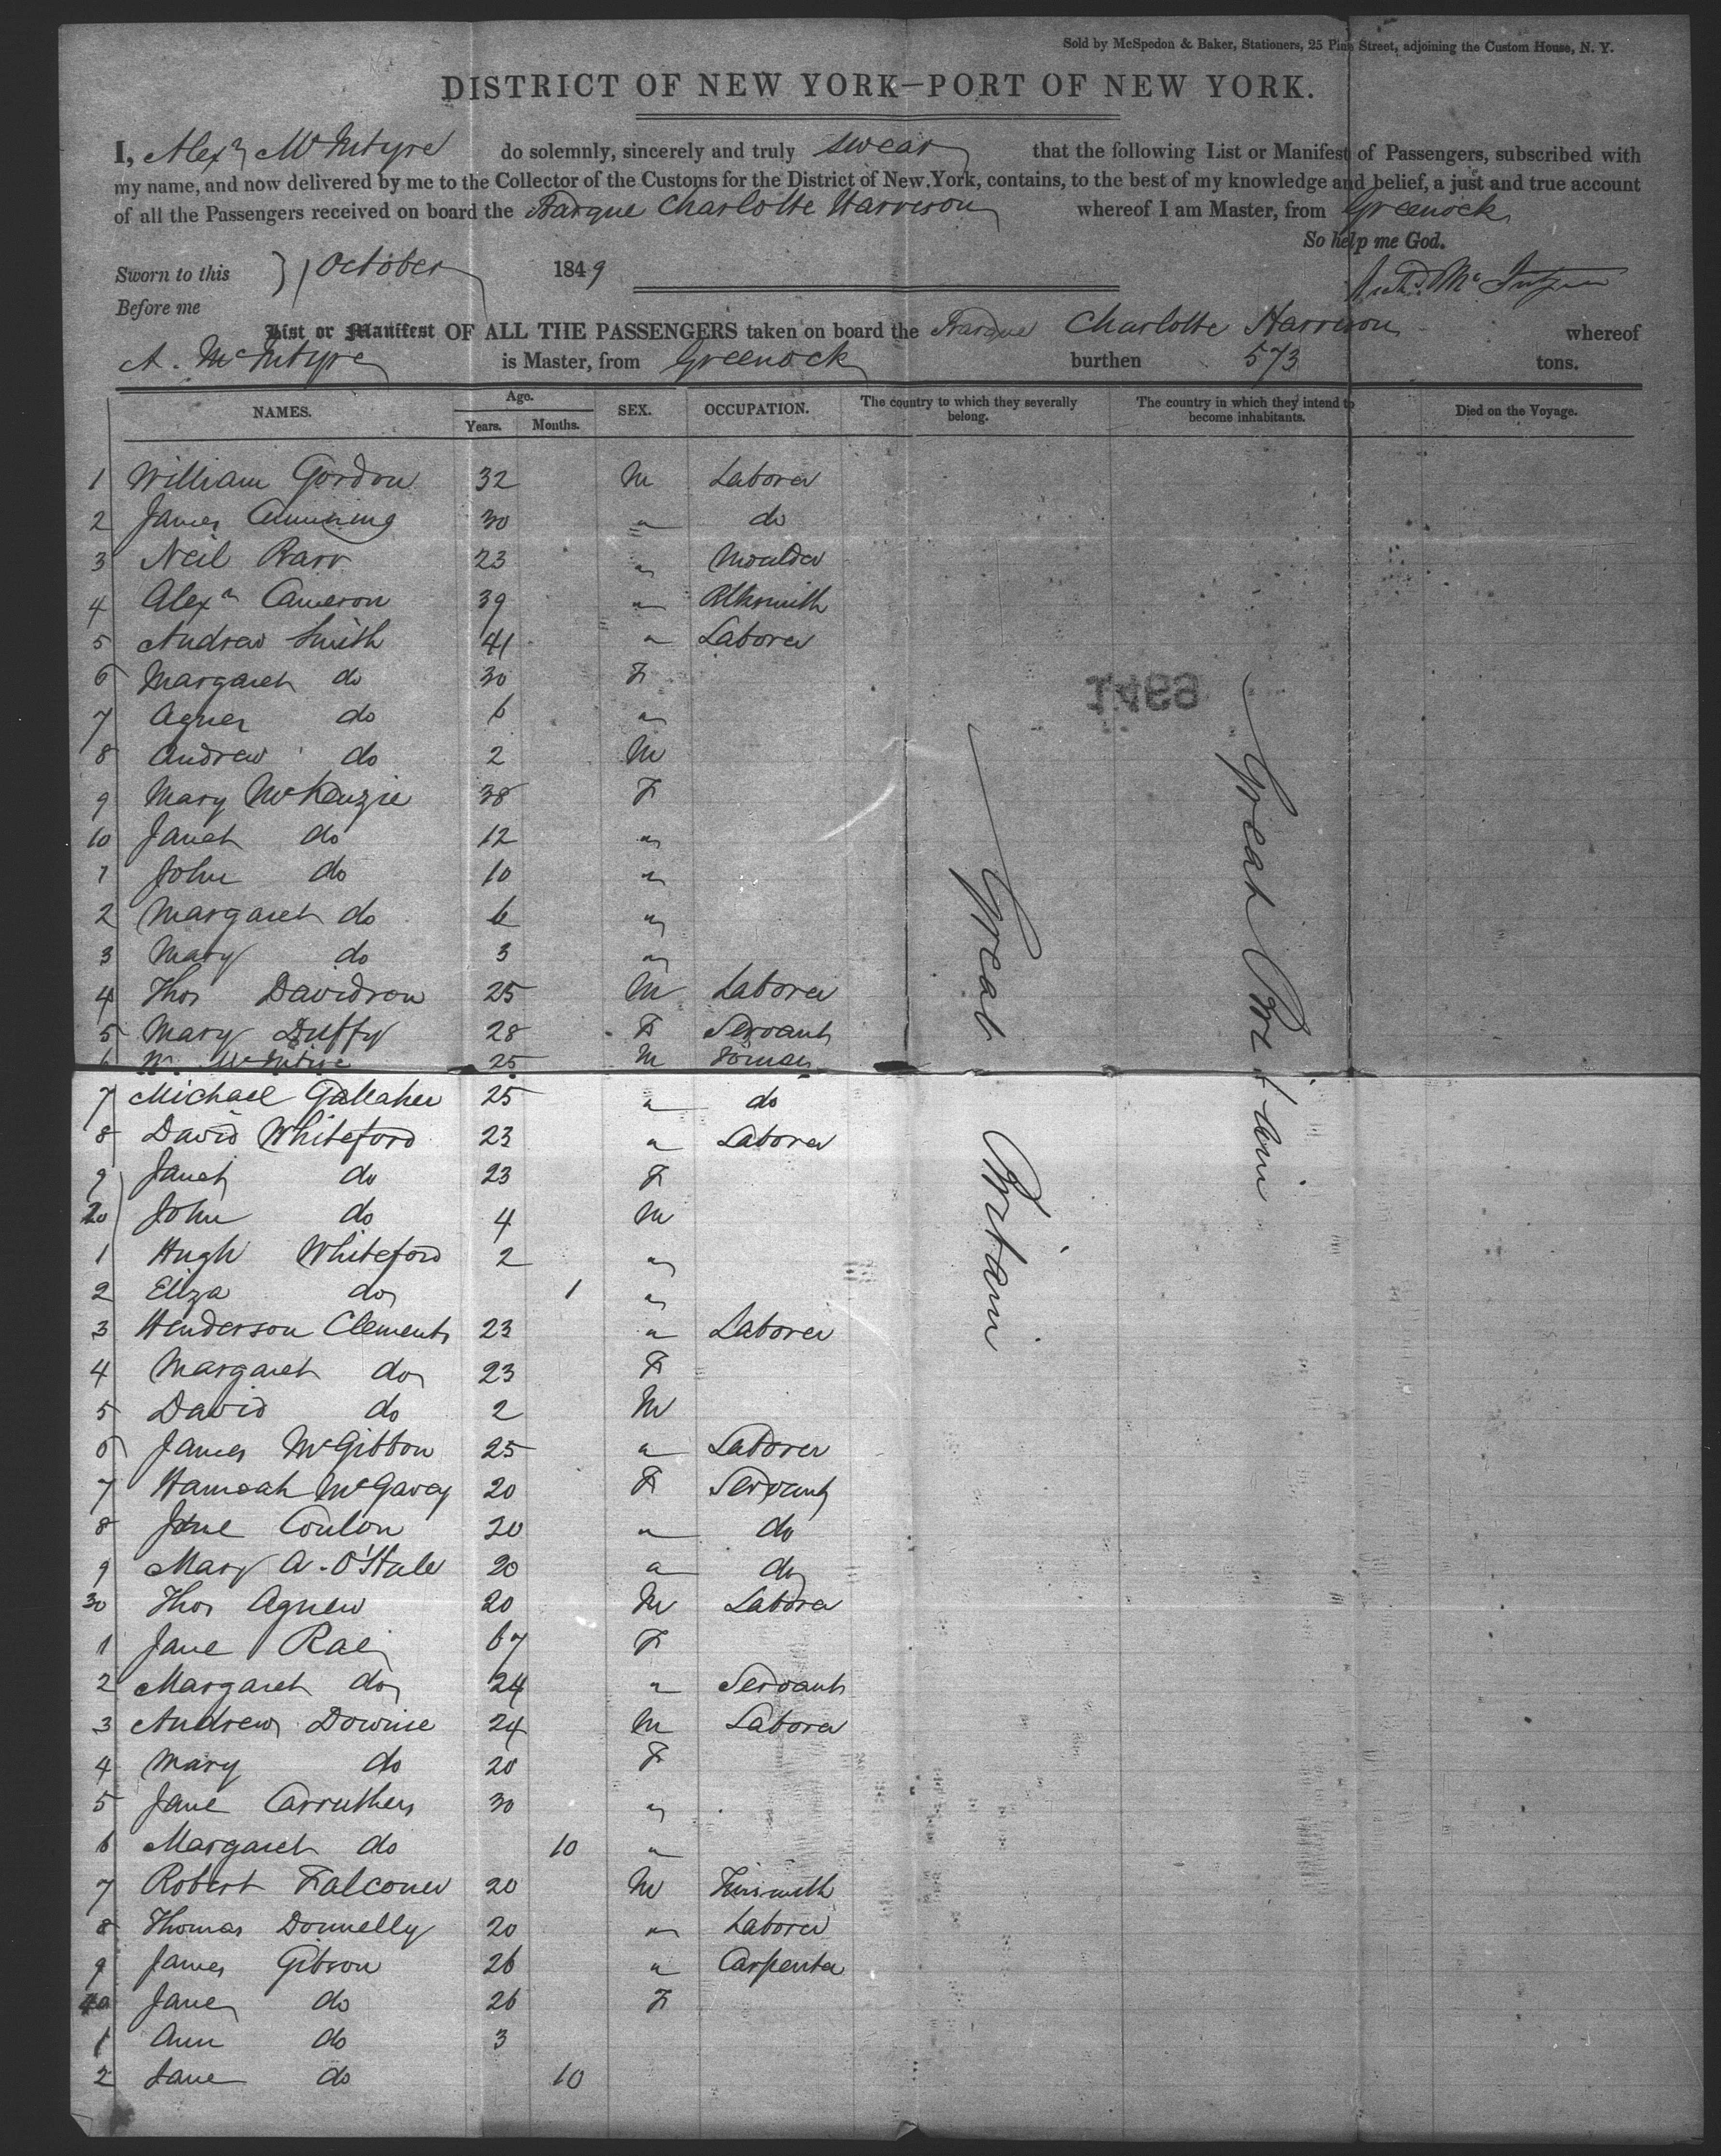 Sold by McSpedon & Baker, Stationers, 25 Pine Street, adjoining the Custom House, N. Y.
DISTRICT OF NEW YORK—PORT OF NEW YORK.
I, Alexr McIntyre do solemnly, sincerely and truly swear that the following List or Manifest of Passengers, subscribed with
my name, and now delivered by me to the Collector of the Customs for the District of New York, contains, to the best of my knowledge and belief, a just and true account
of all the Passengers received on board the Barque Charlotte Harrison whereof I am Master, from Greenock
So help me God.
Sworn to this 1 October 1849
Before me
McIntyre
List or Manifest OF ALL THE PASSENGERS taken on board the Barque Charlotte Harrison whereof
A. McIntyre is Master, from Greenock burthen 573 tons.
NAMES. Age. Years. Months. SEX. OCCUPATION. The country to which they severally belong. The country in which they intend to become inhabitants. Died on the Voyage.
1 William Gordon 32 M Laborer
2 James Cumming 30 " do
3 Neil Barr 23 " Moulder
4 Alexr Cameron 39 " Blksmith
5 Andrew Smith 41 " Laborer
6 Margaret do 30 F
7 Agnes do 6 "
8 Andrew do 2 M
9 Mary McKenzie 38 F
10 Janet do 12 "
1 John do 10 "
2 Margaret do 6 "
3 Mary do 3 "
4 Thos Davidson 25 M Laborer
5 Mary Duffy 28 F Servant
6 W. McIntire 25 M
7 Michael Gallaher 25 " do
8 David Whiteford 23 " Laborer
9 Janet do 23 F
20 John do 4 M
1 Hugh Whiteford 2 "
2 Eliza do 1 "
3 Henderson Clements 23 " Laborer
4 Margaret do 23 F
5 David do 2 M
6 James McGibbon 25 " Laborer
7 Hannah McGavey 20 F Servant
8 Jane Conlon 20 " do
9 Mary A. O'Hale 20 " do
30 Thos Agnew 20 M Laborer
1 Jane Rae 67 F
2 Margaret do 24 " Servant
3 Andrew Downie 24 M Laborer
4 Mary do 20 F
5 Jane Carruthers 30 "
6 Margaret do 10 "
7 Robert Falconer 20 M Tinsmith
8 Thomas Donnelly 20 " Laborer
9 James Gibson 26 " Carpenter
40 Jane do 26 F
1 Ann do 3
2 Jane do 10
Great Britain
Great Britain